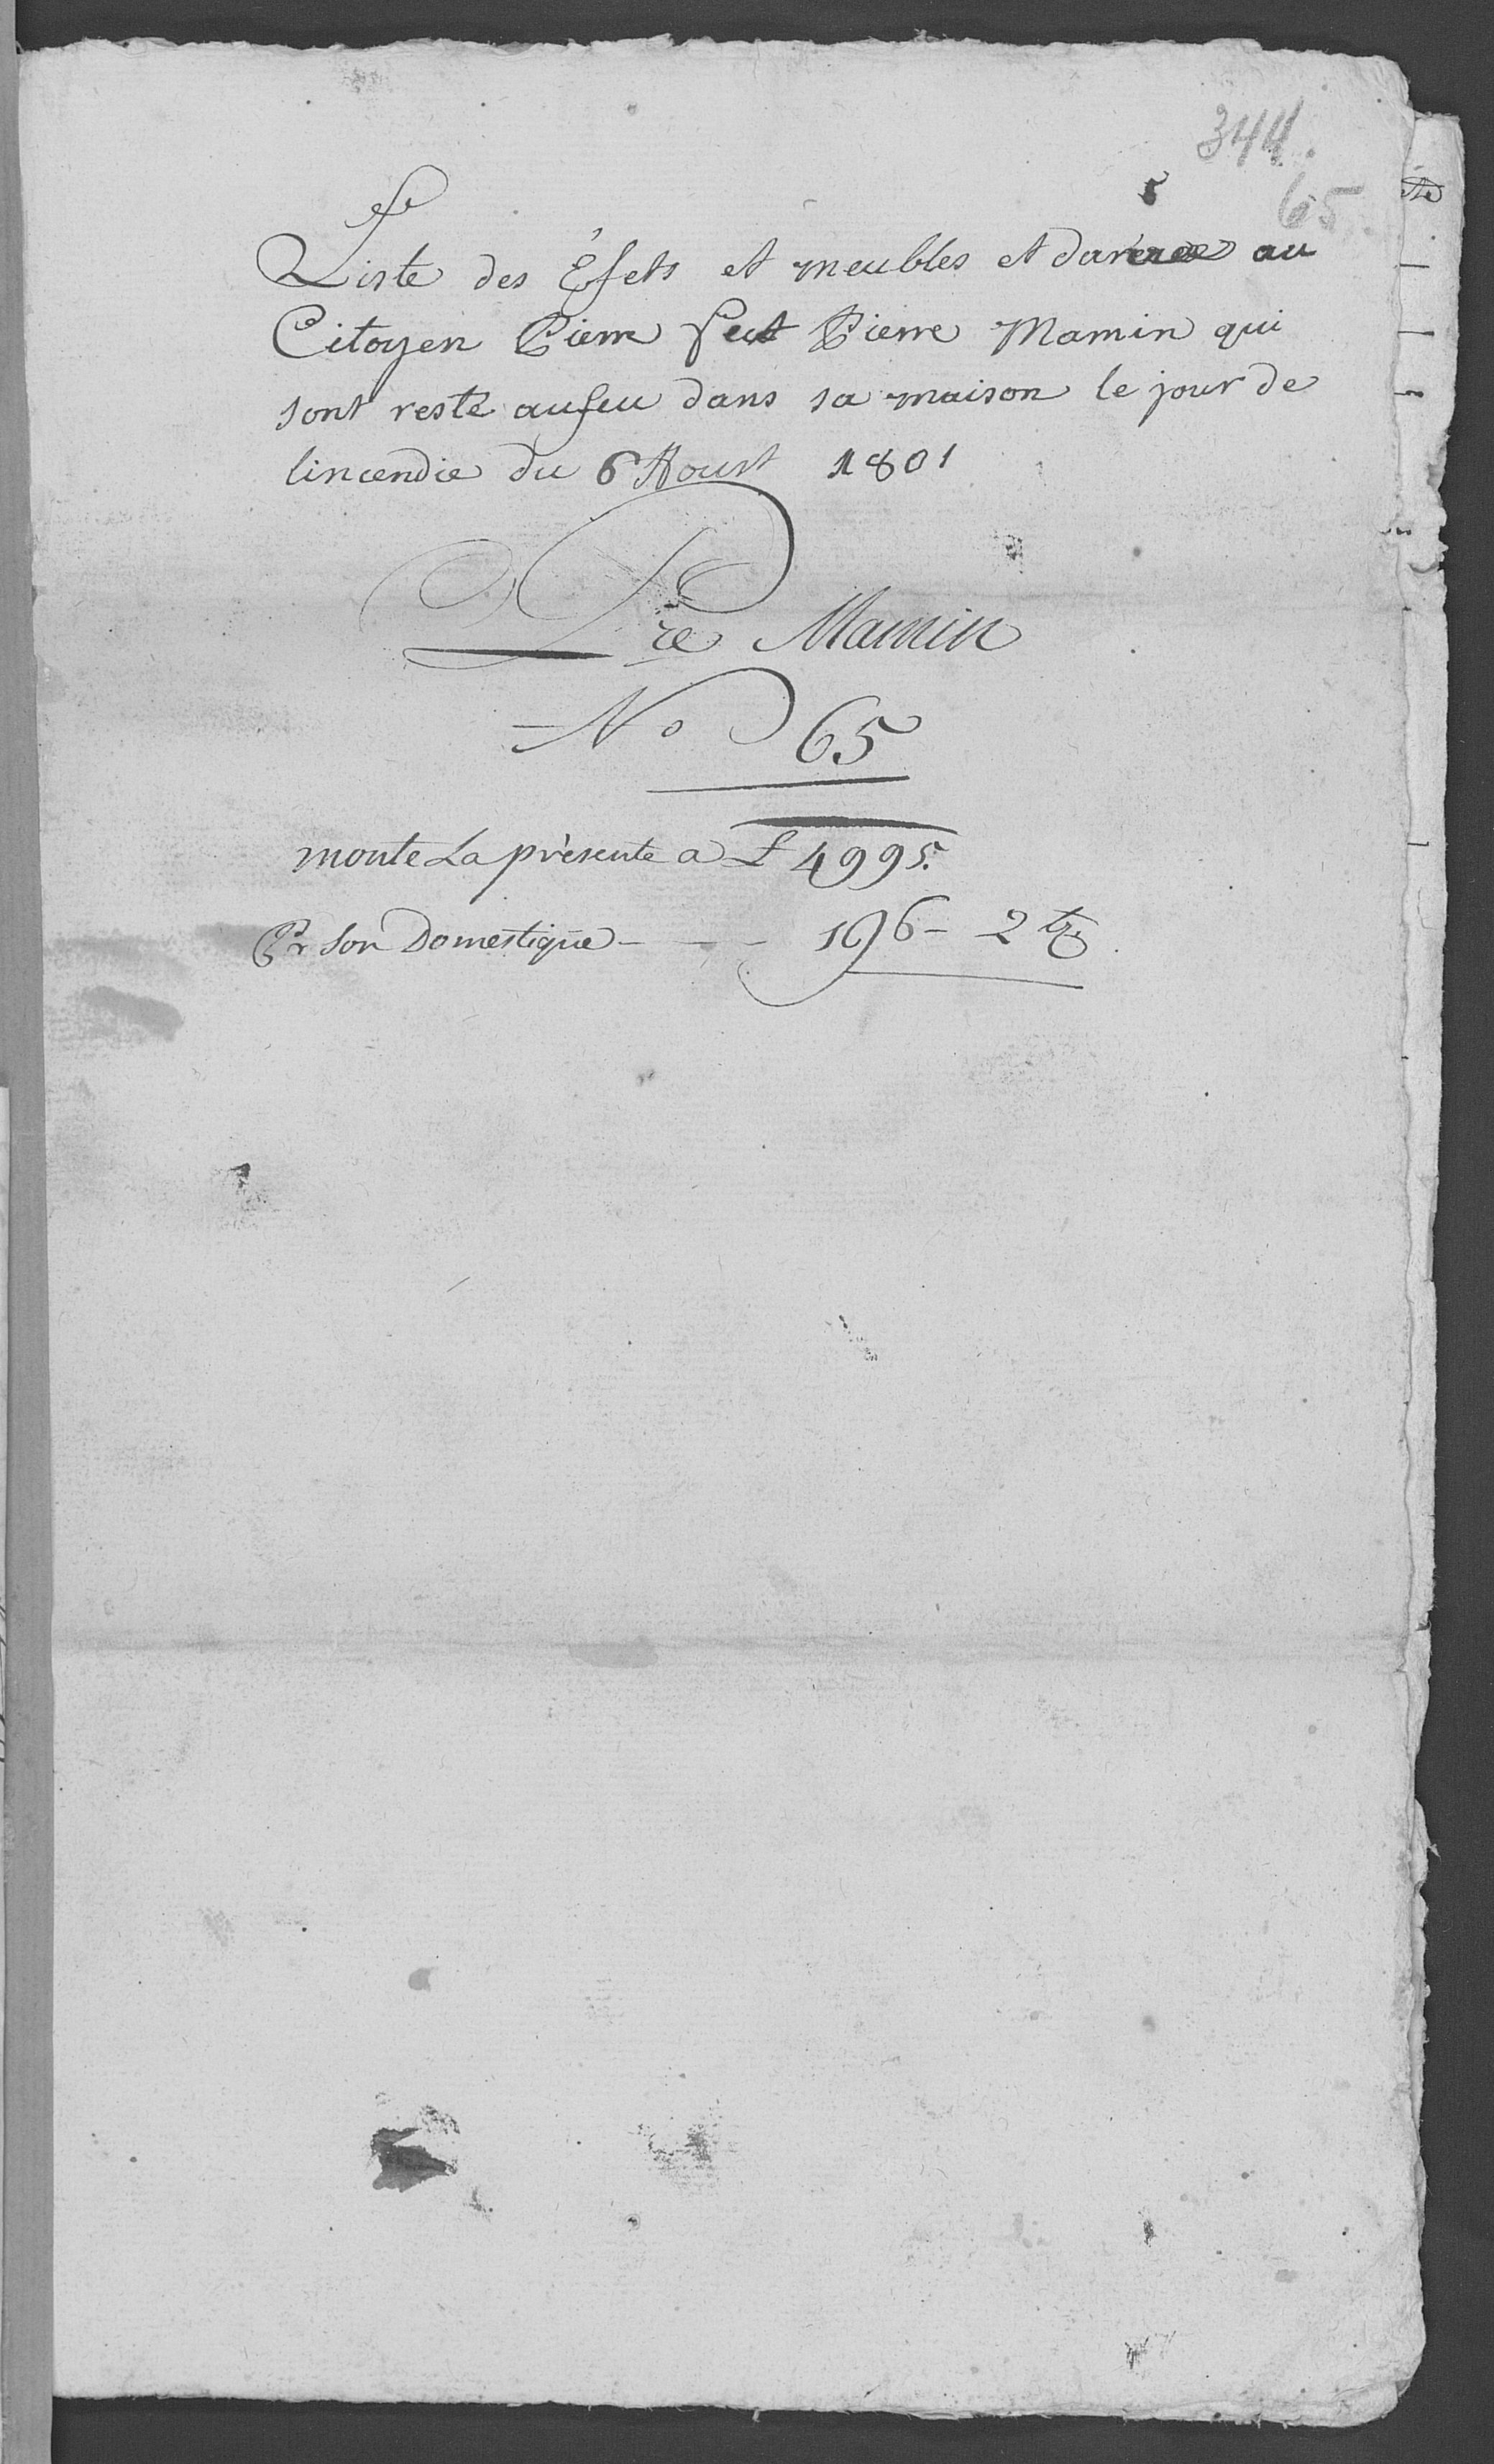 344.
65
Liste des Éfets et meubles et au
Citoyen Pierre feut Pierre Mamin qui
sont resté aufeu dans sa maison le jour de
lincendie du 6 Aoust 1801
Pre Mamin
No 65
monte La présente a £ 4995.
Pr Son Domestique - - - 196 - 2